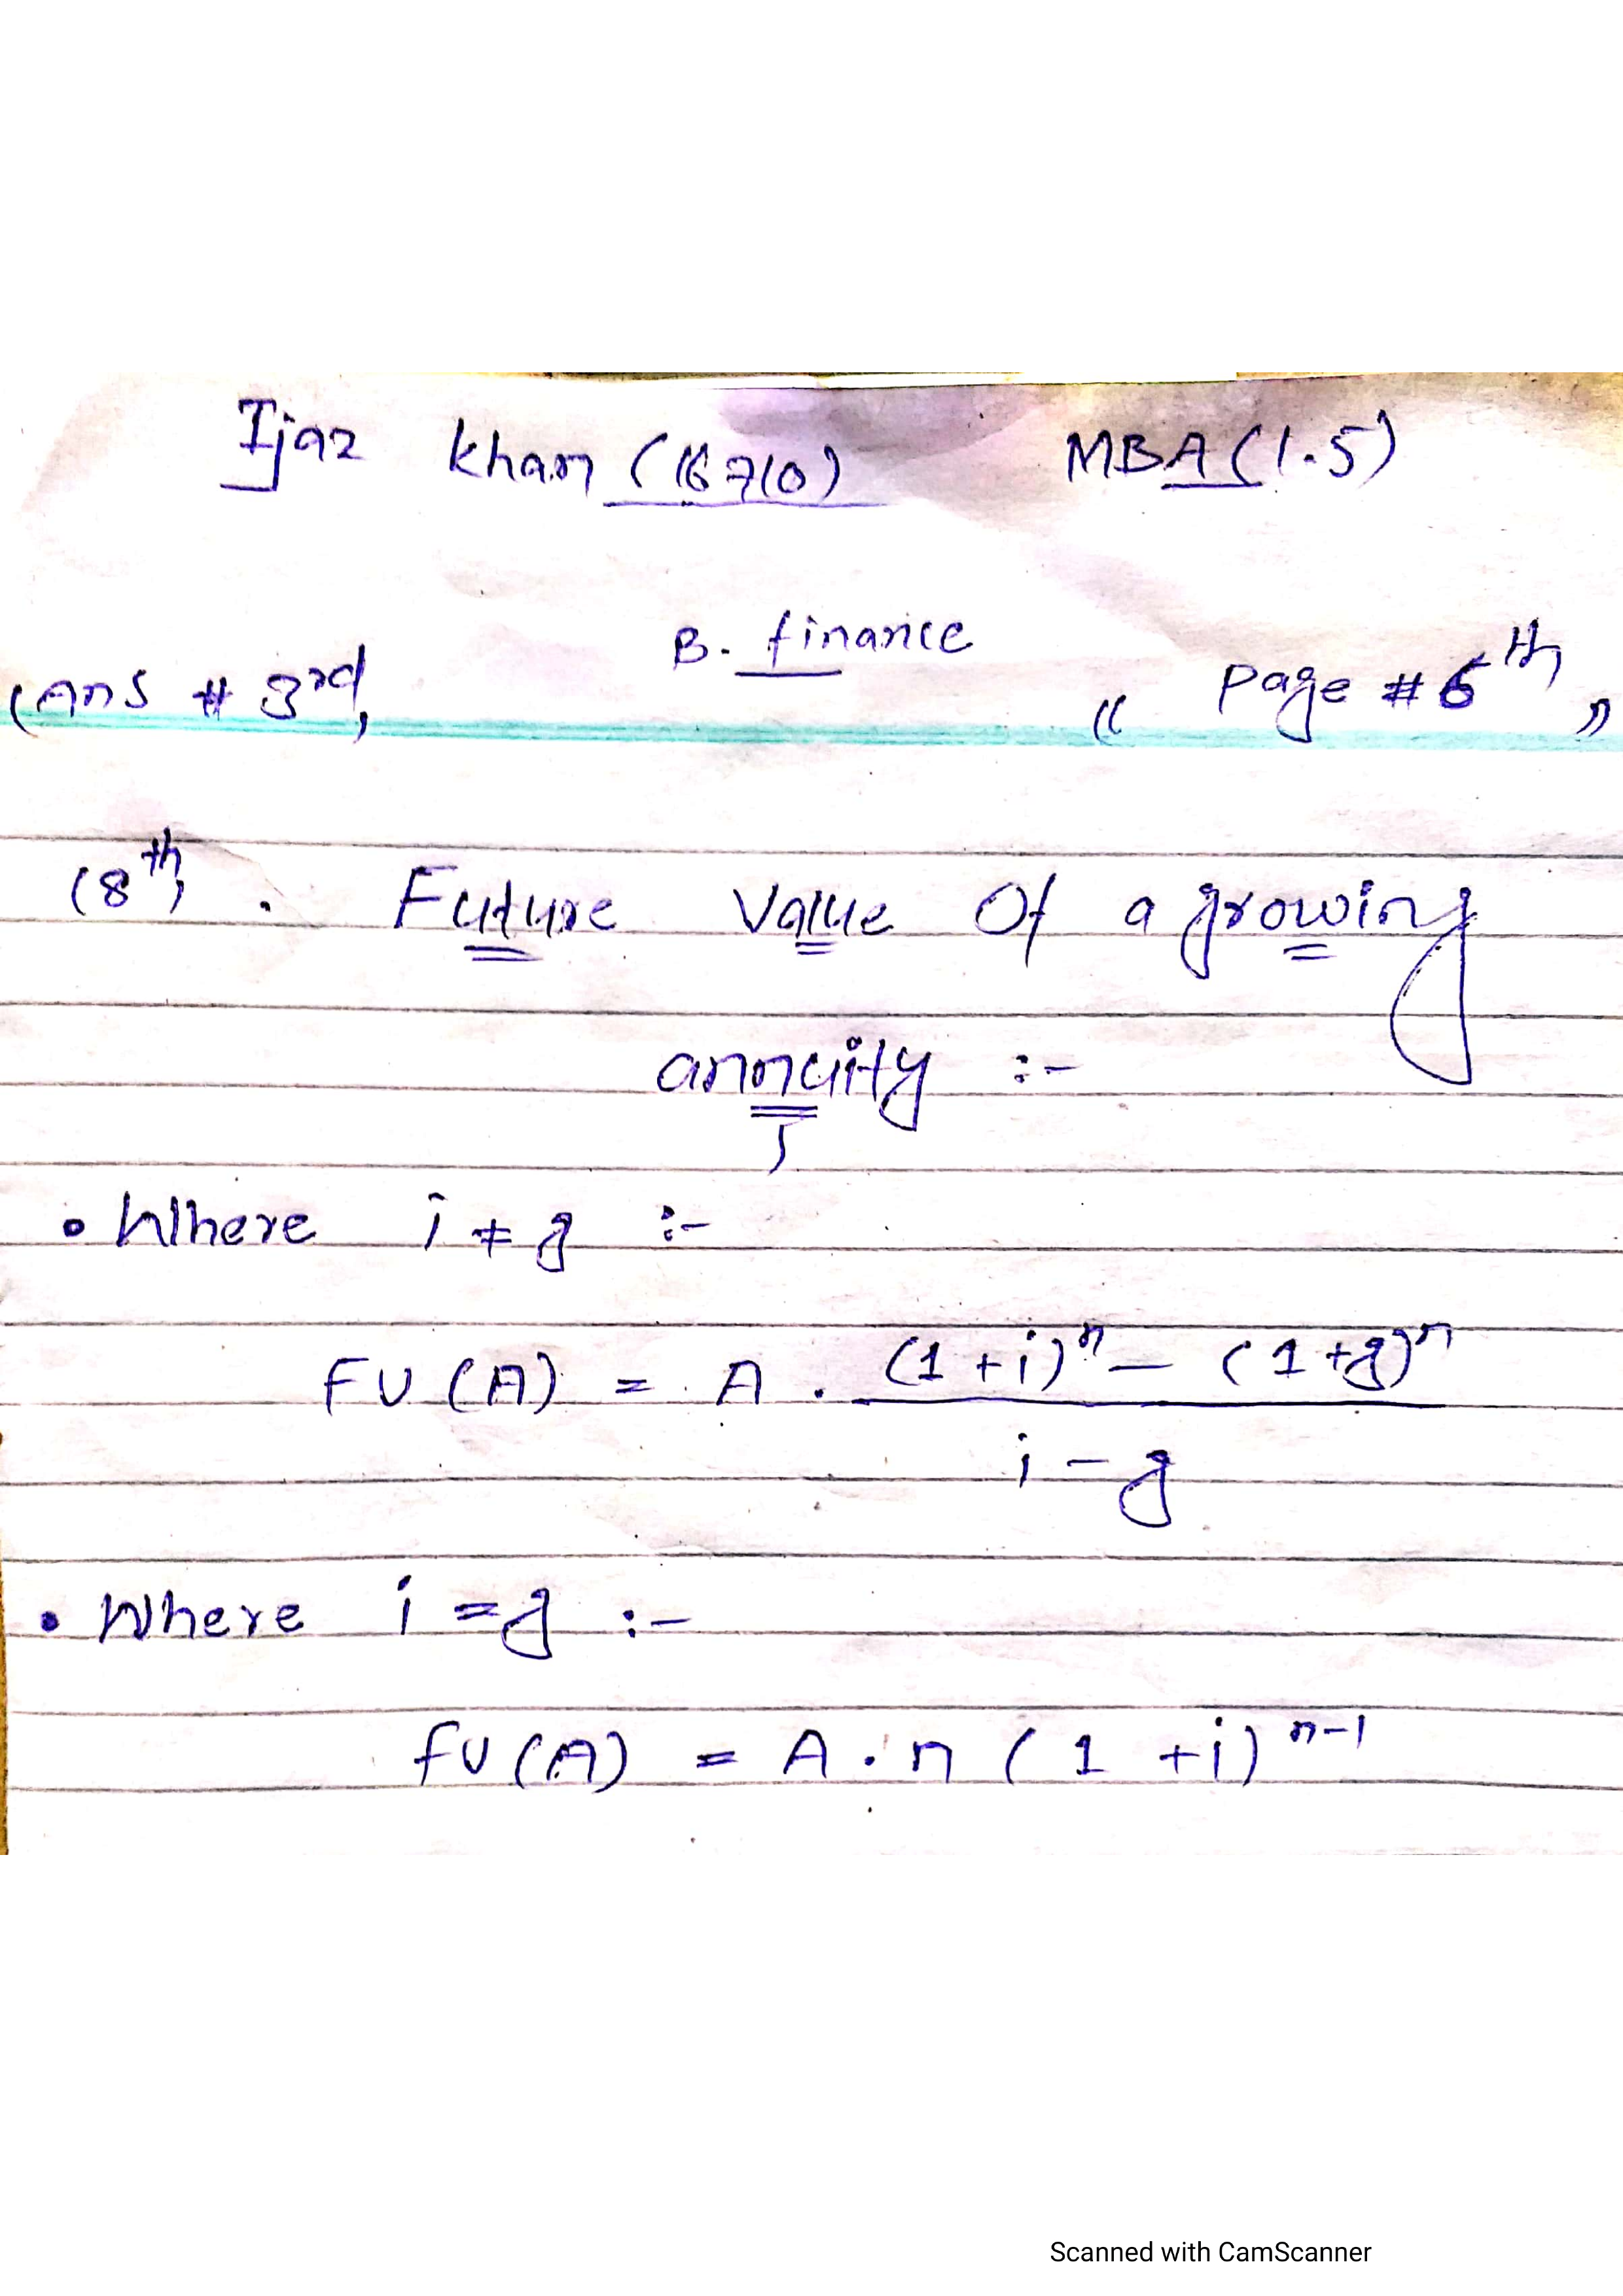 Ijaz Khan (16710) MBA (1.5)
B. finance
(Ans # 3rd, (( Page # 6th ))
(8th) . Future Value Of a growing
annuity :-
• Where i ≠ g :-
FV (A) = A . (1 + i)^n – (1 + g)^n
i – g
• Where i = g :-
fv (A) = A . n ( 1 + i)^n-1
Scanned with CamScanner